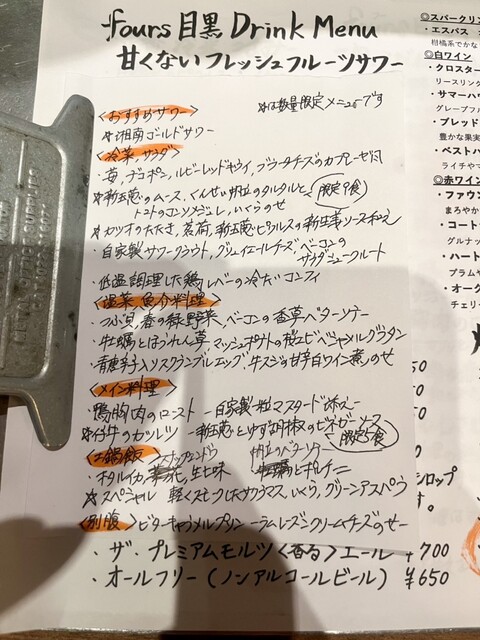 fours 目黒 Drink Menu
甘くないフレッシュフルーツサワー
<おすすめサワー>
☆は数量限定メニューです
☆湘南ゴールドサワー
<冷菜、サラダ>
・苺、デコポン、ルビーレッドキウイ、ブラータチーズのカプレーゼ風
☆新玉葱のムース、くんせい帆立のタルタルと
限定9食
トマトのコンソメジュレ、いくらのせ
☆カツオのたたき、茗荷、新玉葱とピクルスの新生姜ソース和え
・自家製サワークラウト、グリュイエールチーズ、ベーコンの
サラダシュークルート
・低温調理した鶏レバーの冷たいコンフィ
<温菜、魚介料理>
・つぶ貝、春の緑野菜、ベーコンの香草バターソテー
・牡蠣とほうれん草、マッシュポテトの桜エビベシャメルグラタン
・青唐辛子入りスクランブルエッグ、牛スジの甘辛白ワイン煮のせ
<メイン料理>
・鴨胸肉のロースト -自家製粒マスタード添え-
☆仔牛のカツレツ -新玉葱とゆず胡椒のビネガーソース
限定5食
<土鍋飯>
スナップエンドウ
帆立のバターソテー
・ホタルイカ、生七味
とポルチーニ
☆スペシャル 軽くスモークしたサクラマス、いくら、グリーンアスパラ
<別腹> ビターキャラメルプリン -ラムレーズンクリームチーズのせ-
・ザ・プレミアムモルツ〈香る〉エール ¥700
・オールフリー(ノンアルコールビール) ¥650
◎スパークリン
・エスパス
柑橘系でかな
◎白ワイン
・クロスター
リースリング
・サマーハウ
グレープフル
・ブレッド
豊かな果実
・ベストハ
ライチやマ
◎赤ワイン
・ファウン
まろやか
・コート
グルナッ
・ハート
プラムや
・オーク
チェリー
50
50
50
シロップ
す。